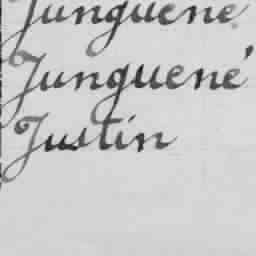 Junguené
Junguené
Justin